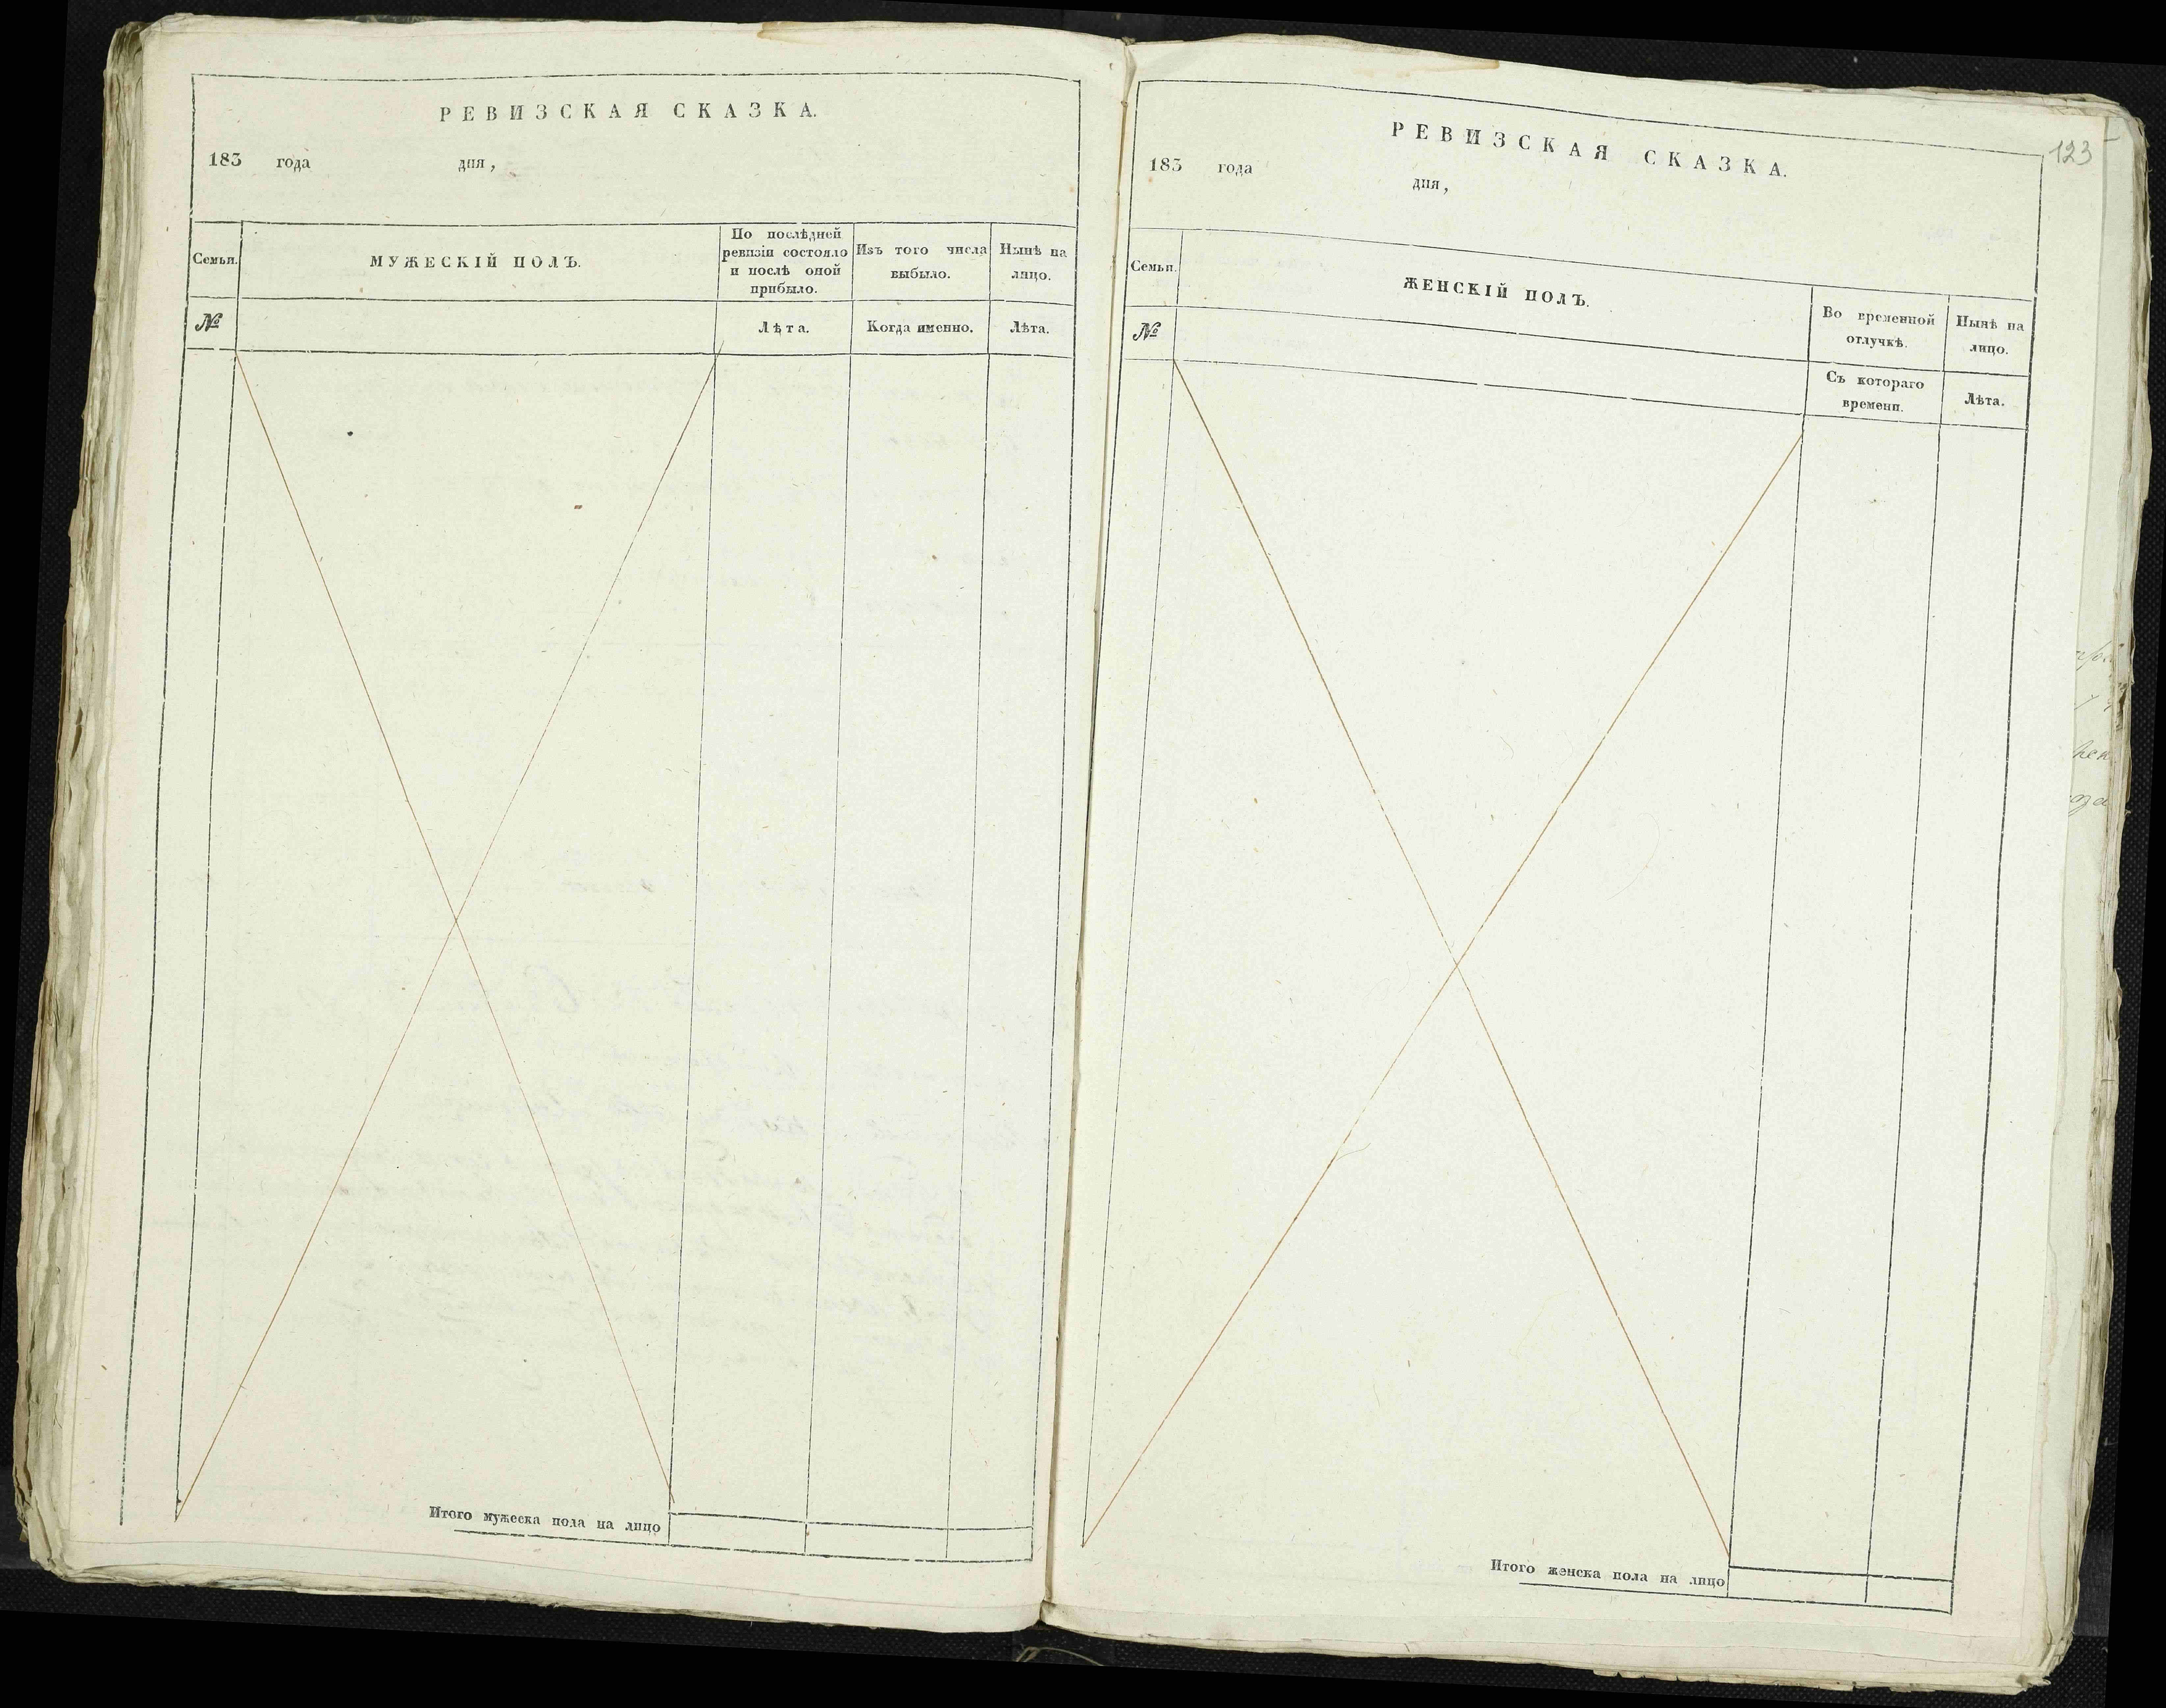 РЕВИЗСКАЯ СКАЗКА.
183 года дня,
Семьи.
МУЖЕСКІЙ ПОЛЪ.
По послѣдней
ревизіи состояло
и послѣ оной
прибыло.
Изъ того числа
выбыло.
Нынѣ на
лицо.
№
Лѣта.
Когда именно.
Лѣта.
Итого мужеска пола на лицо
123
РЕВИЗСКАЯ СКАЗКА.
183 года дня,
Семьи.
ЖЕНСКІЙ ПОЛЪ.
Во временной
отлучкѣ.
Нынѣ на
лицо.
№
Съ котораго
времени.
Лѣта.
Итого женска пола на лицо